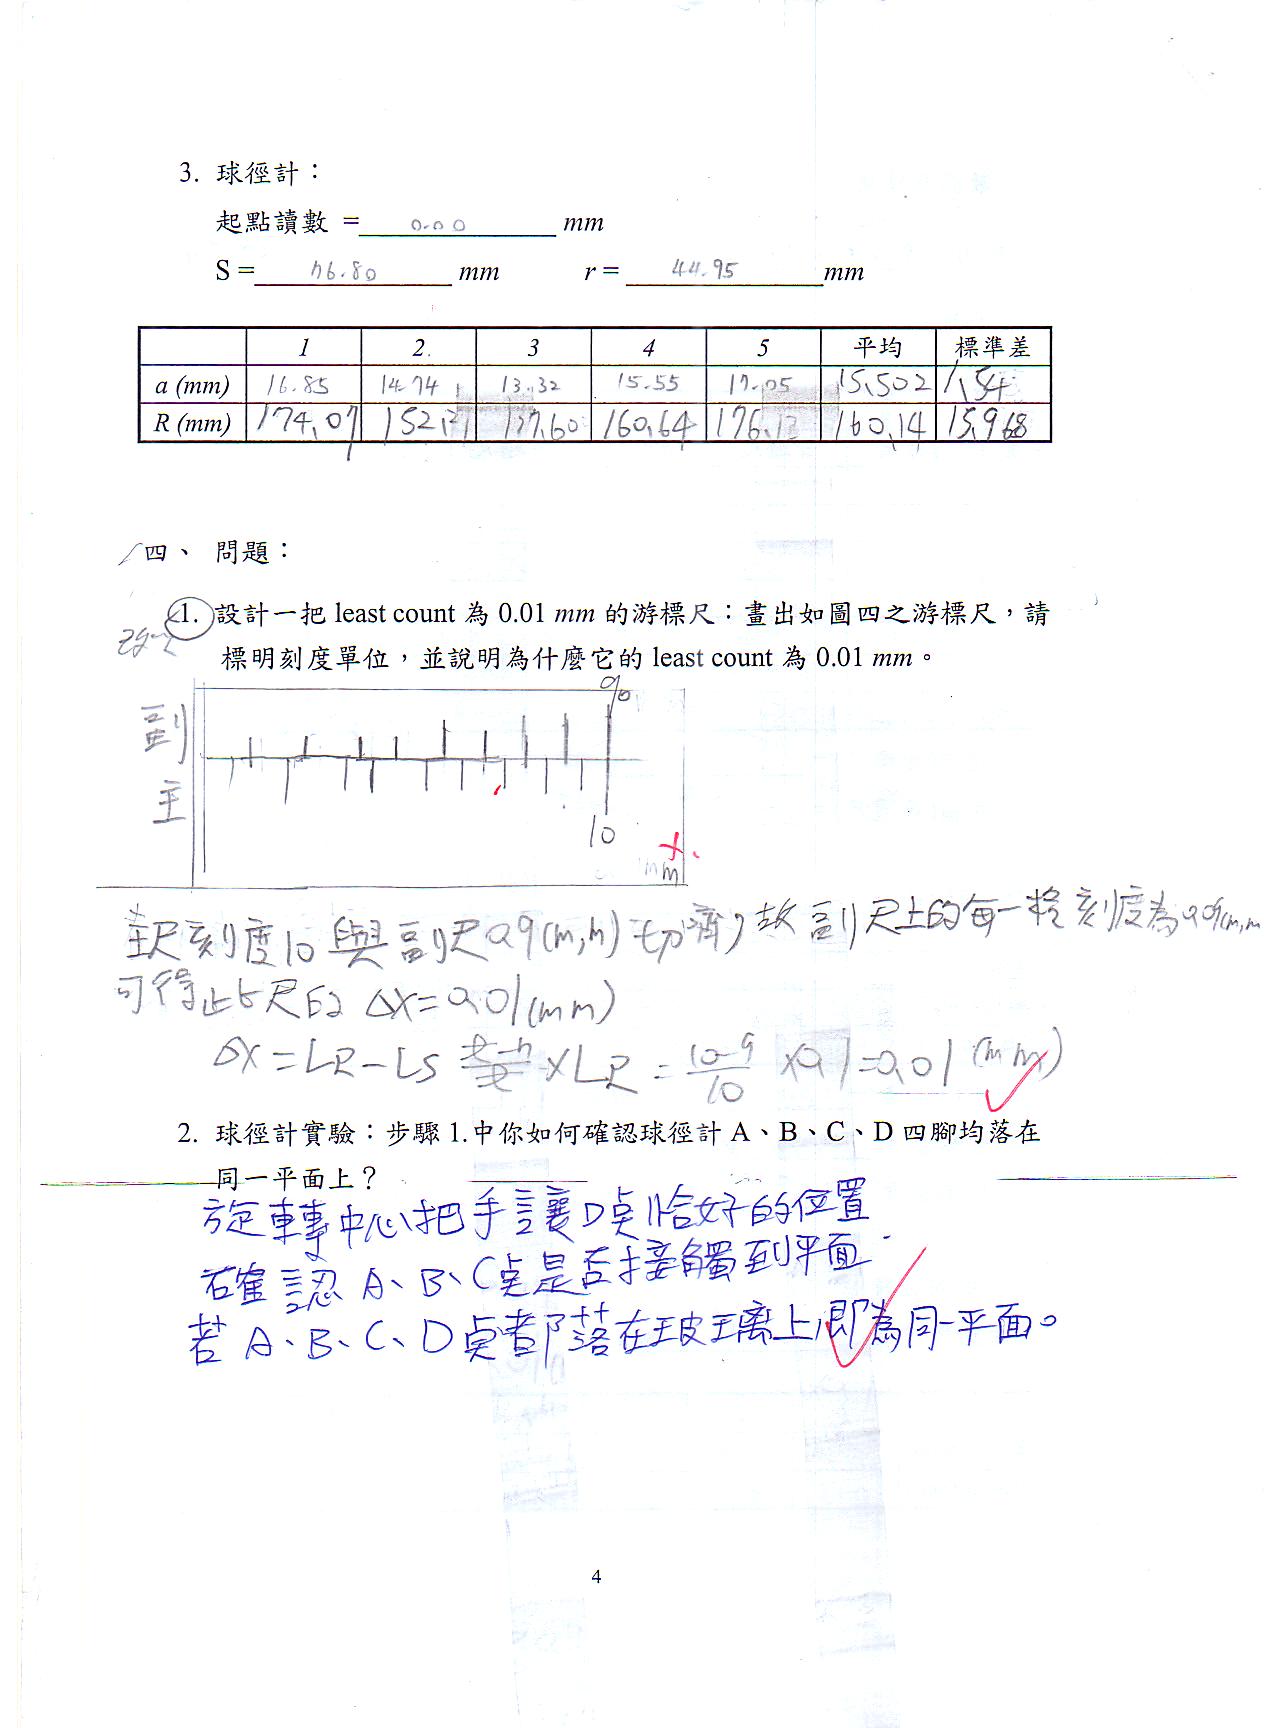 3. 球徑計：
起點讀數 = 0.00 mm
S = 76.80 mm r = 44.95 mm
1 2. 3 4 5 平均 標準差
a (mm) 16.85 14.74 13.32 15.55 17.05 15.502 1.54
R (mm) 174.07 152.21 137.60 160.64 176.12 160.14 15.968
四、 問題：
1. 設計一把 least count 為 0.01 mm 的游標尺：畫出如圖四之游標尺，請
標明刻度單位，並說明為什麼它的 least count 為 0.01 mm。
副
主
10
mm
主尺刻度10與副尺0.9(m,m)切齊，故副尺上的每一格刻度為0.09(m,m
可得此尺的 ΔX=0.01(mm)
ΔX = LR-LS × LR = 10-9/10 × 0.1 = 0.01 (mm)
2. 球徑計實驗：步驟 1.中你如何確認球徑計 A、B、C、D 四腳均落在
同一平面上？
旋轉中心把手讓D點恰好的位置
確認 A、B、C點是否接觸到平面.
若 A、B、C、D點都落在玻璃上，即為同一平面。
4